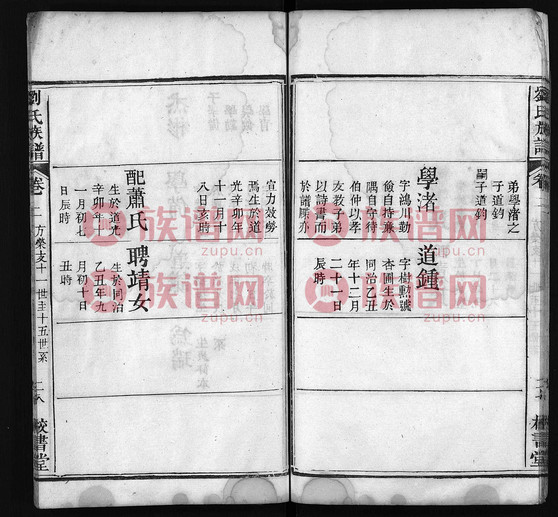 劉氏族譜
卷
弟學渚之
子道鈞
嗣子道鈞
學渚
字鴻川勤
儉自持廉
隅自守待
伯仲以孝
友教子弟
以詩書而
於譜牒亦
道鍾
字樹勲號
杏圃生於
同治乙丑
年十二月
二十一日
辰時
宣力效勞
焉生於道
光辛卯年
十一月十
八日亥時
配蕭氏
生於道光
辛卯年十
一月初七
日辰時
聘靖女
生於同治
乙丑年九
月初十日
丑時
劉氏族譜
卷二
方榮支十一世圭十五世系
二八
校書堂
族谱网
zupu.cn
族谱网
zupu.cn
族谱网
zupu.cn
族谱网
zupu.cn